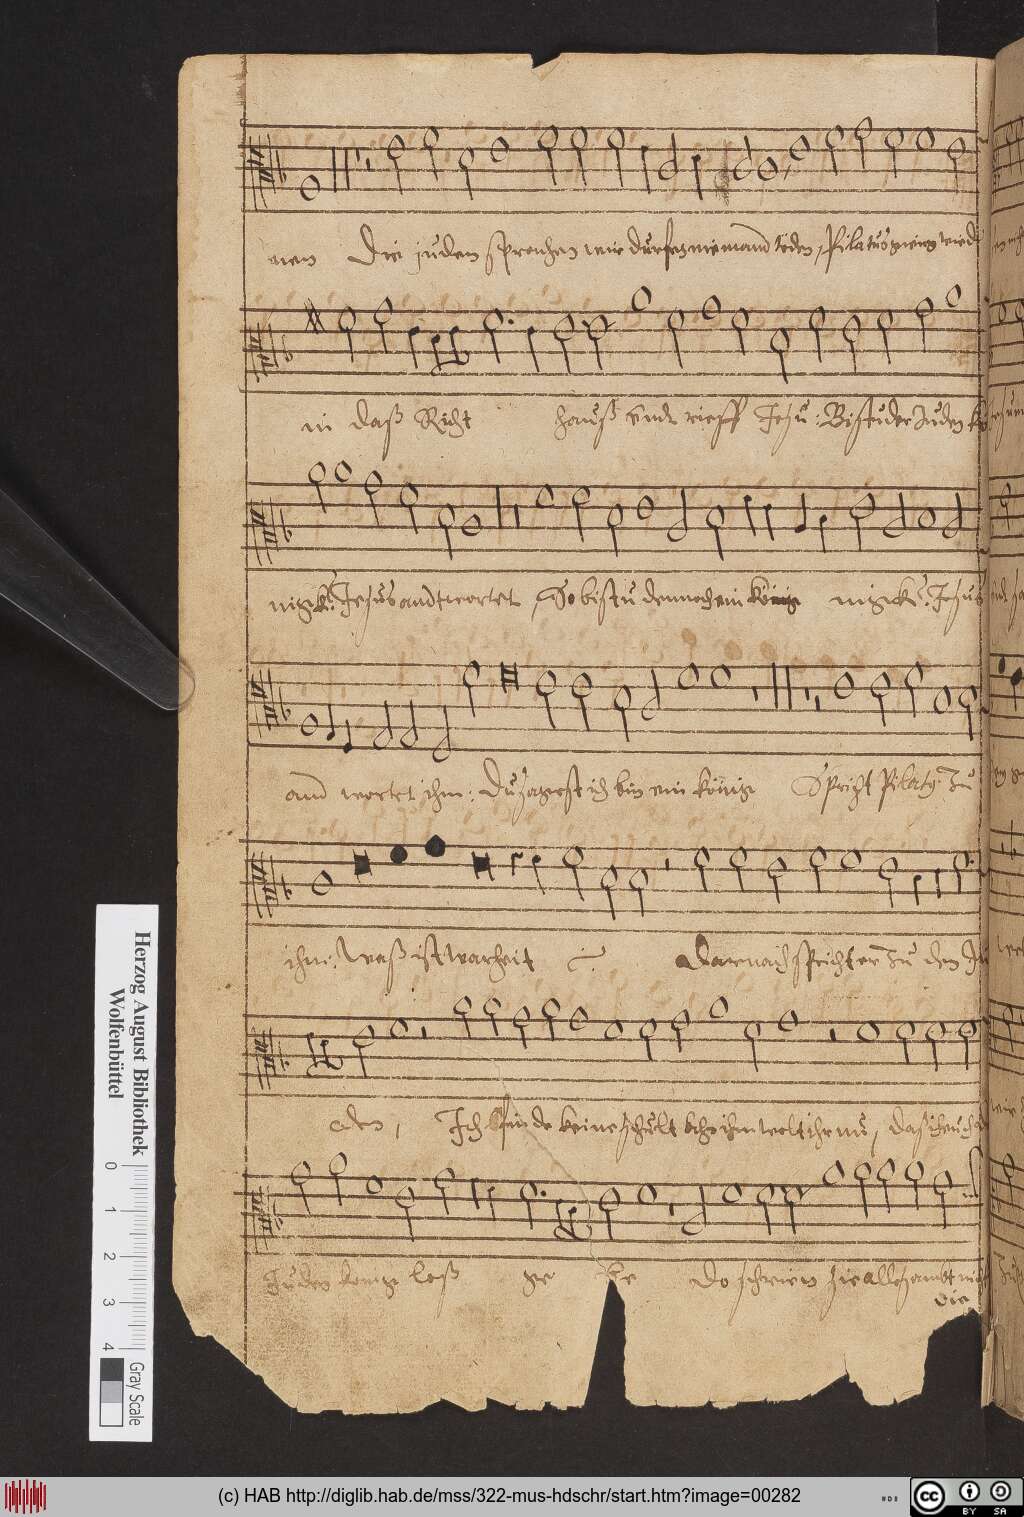 nen Die juden sprachen wir durfen niemand töden, Pilatus gieng wied
in daß Richt hauß vndt rieff Jesu: Bistu der Juden kö
nigk? Jesus andtwortet, So bistu dennoch ein nigk? Jesus
andwortet ihm: Du sagest ich bin ein könig Spricht Pilatus Zu
ihm: Waß ist warheit Darnach spricht er Zu den Ju
eden, Ich finde keine schult ahn ihm wolt ihr nu, das ich euch d
Juden konig loß ge be Do schrien sie alle sambt nicht
die
Herzog August Bibliothek
Wolfenbüttel
0 1 2 3 4
Gray Scale
(c) HAB http://diglib.hab.de/mss/322-mus-hdschr/start.htm?image=00282
HAB
cc BY SA